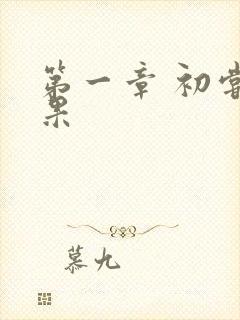 第一章 初尝
果
慕九